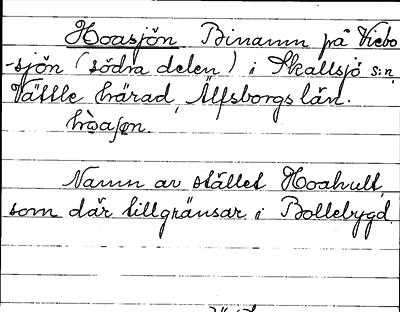 Hoasjön Binamn på Viebo
-sjön (södra delen) i Skallsjö s:n,
Vättle härad, Älfsborgs län.
hòaʃøn.
Namn av stället Hoahult,
som där tillgränsar i Bollebygd.